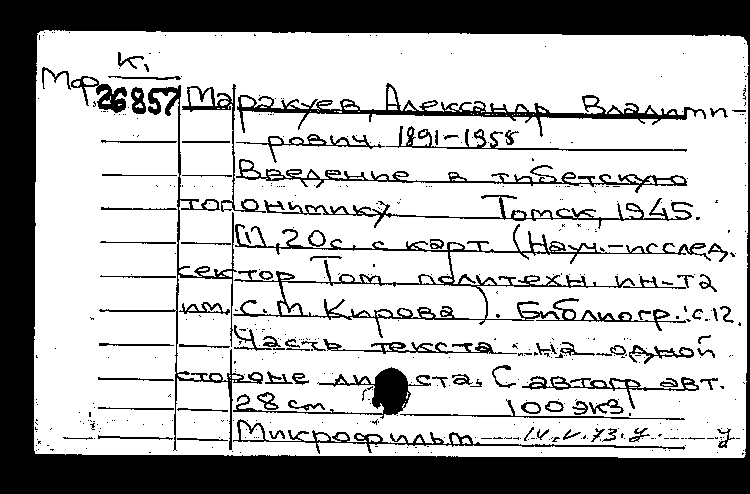 К.
Мф
26857 Маракуев, Александр Владими-
рович. 1891-1955
Введение в тибетскую
топонимику. Томск, 1945.
[1], 20с. с карт. (Науч.-исслед.
сектор Том. политехн. ин-та
им. С.М. Кирова). Библиогр.: с.12.
Часть текста на одной
стороне листа. С автогр. авт.
28 см. 100 экз.
Микрофильм.